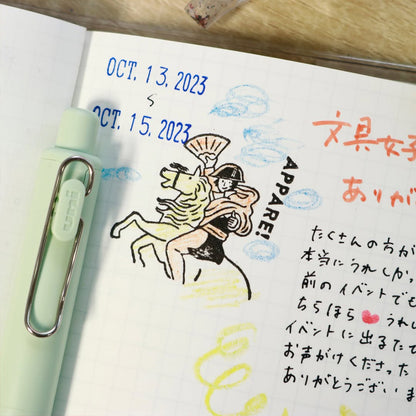 OCT. 13. 2023
OCT. 15. 2023
APPARE!
文具女子
ありが
たくさんの方が
本当にうれしかっ
前のイベントでも
ちらほら❤うれし
イベントに出るた
お声がけくださった
ありがとうございま
uni